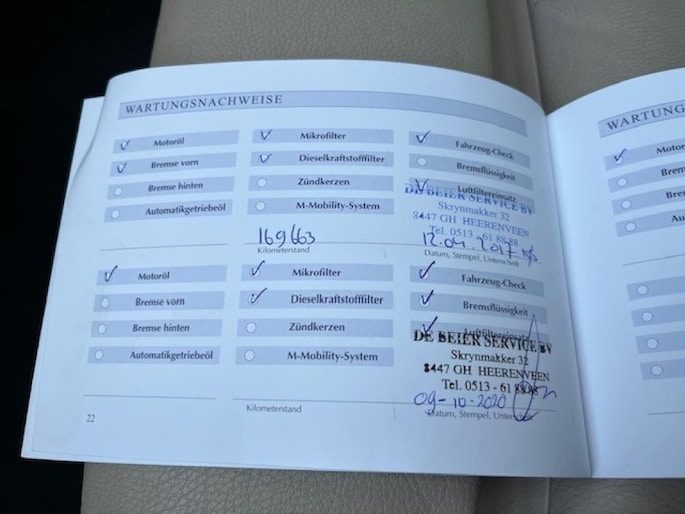 WARTUNGSNACHWEISE
Motoröl Mikrofilter Fahrzeug-Check
Bremse vorn Dieselkraftstofffilter Bremsflüssigkeit
Bremse hinten Zündkerzen Luftfiltereinsatz
Automatikgetriebeöl M-Mobility-System
DE BEIER SERVICE BV
Skrynmakker 32
8447 GH HEERENVEEN
Tel. 0513 - 61 88 88
169663 12.04.2017
Kilometerstand Datum, Stempel, Unterschrift
Motoröl Mikrofilter Fahrzeug-Check
Bremse vorn Dieselkraftstofffilter Bremsflüssigkeit
Bremse hinten Zündkerzen Luftfiltereinsatz
Automatikgetriebeöl M-Mobility-System
DE BEIER SERVICE BV
Skrynmakker 32
8447 GH HEERENVEEN
Tel. 0513 - 61 88 88
09-10-2020
Kilometerstand Datum, Stempel, Unterschrift
22
WARTUNG
Motor
Brem
Brem
Auto